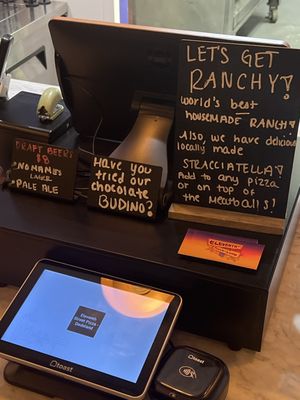 LET'S GET
RANCHY!
WORLD'S best
HOUSEMADE RANCH!
Also, we have delicious
locally made
STRACCIATELLA!
Add to any pizza
or on top of
the Meatballs!
DRAFT BEERS
$8
NO NAMES
LAGER
PALE ALE
HAVE YOU
tried our
chocolate
BUDINO?
Eleventh
Street Pizza -
Dadeland
toast
toast